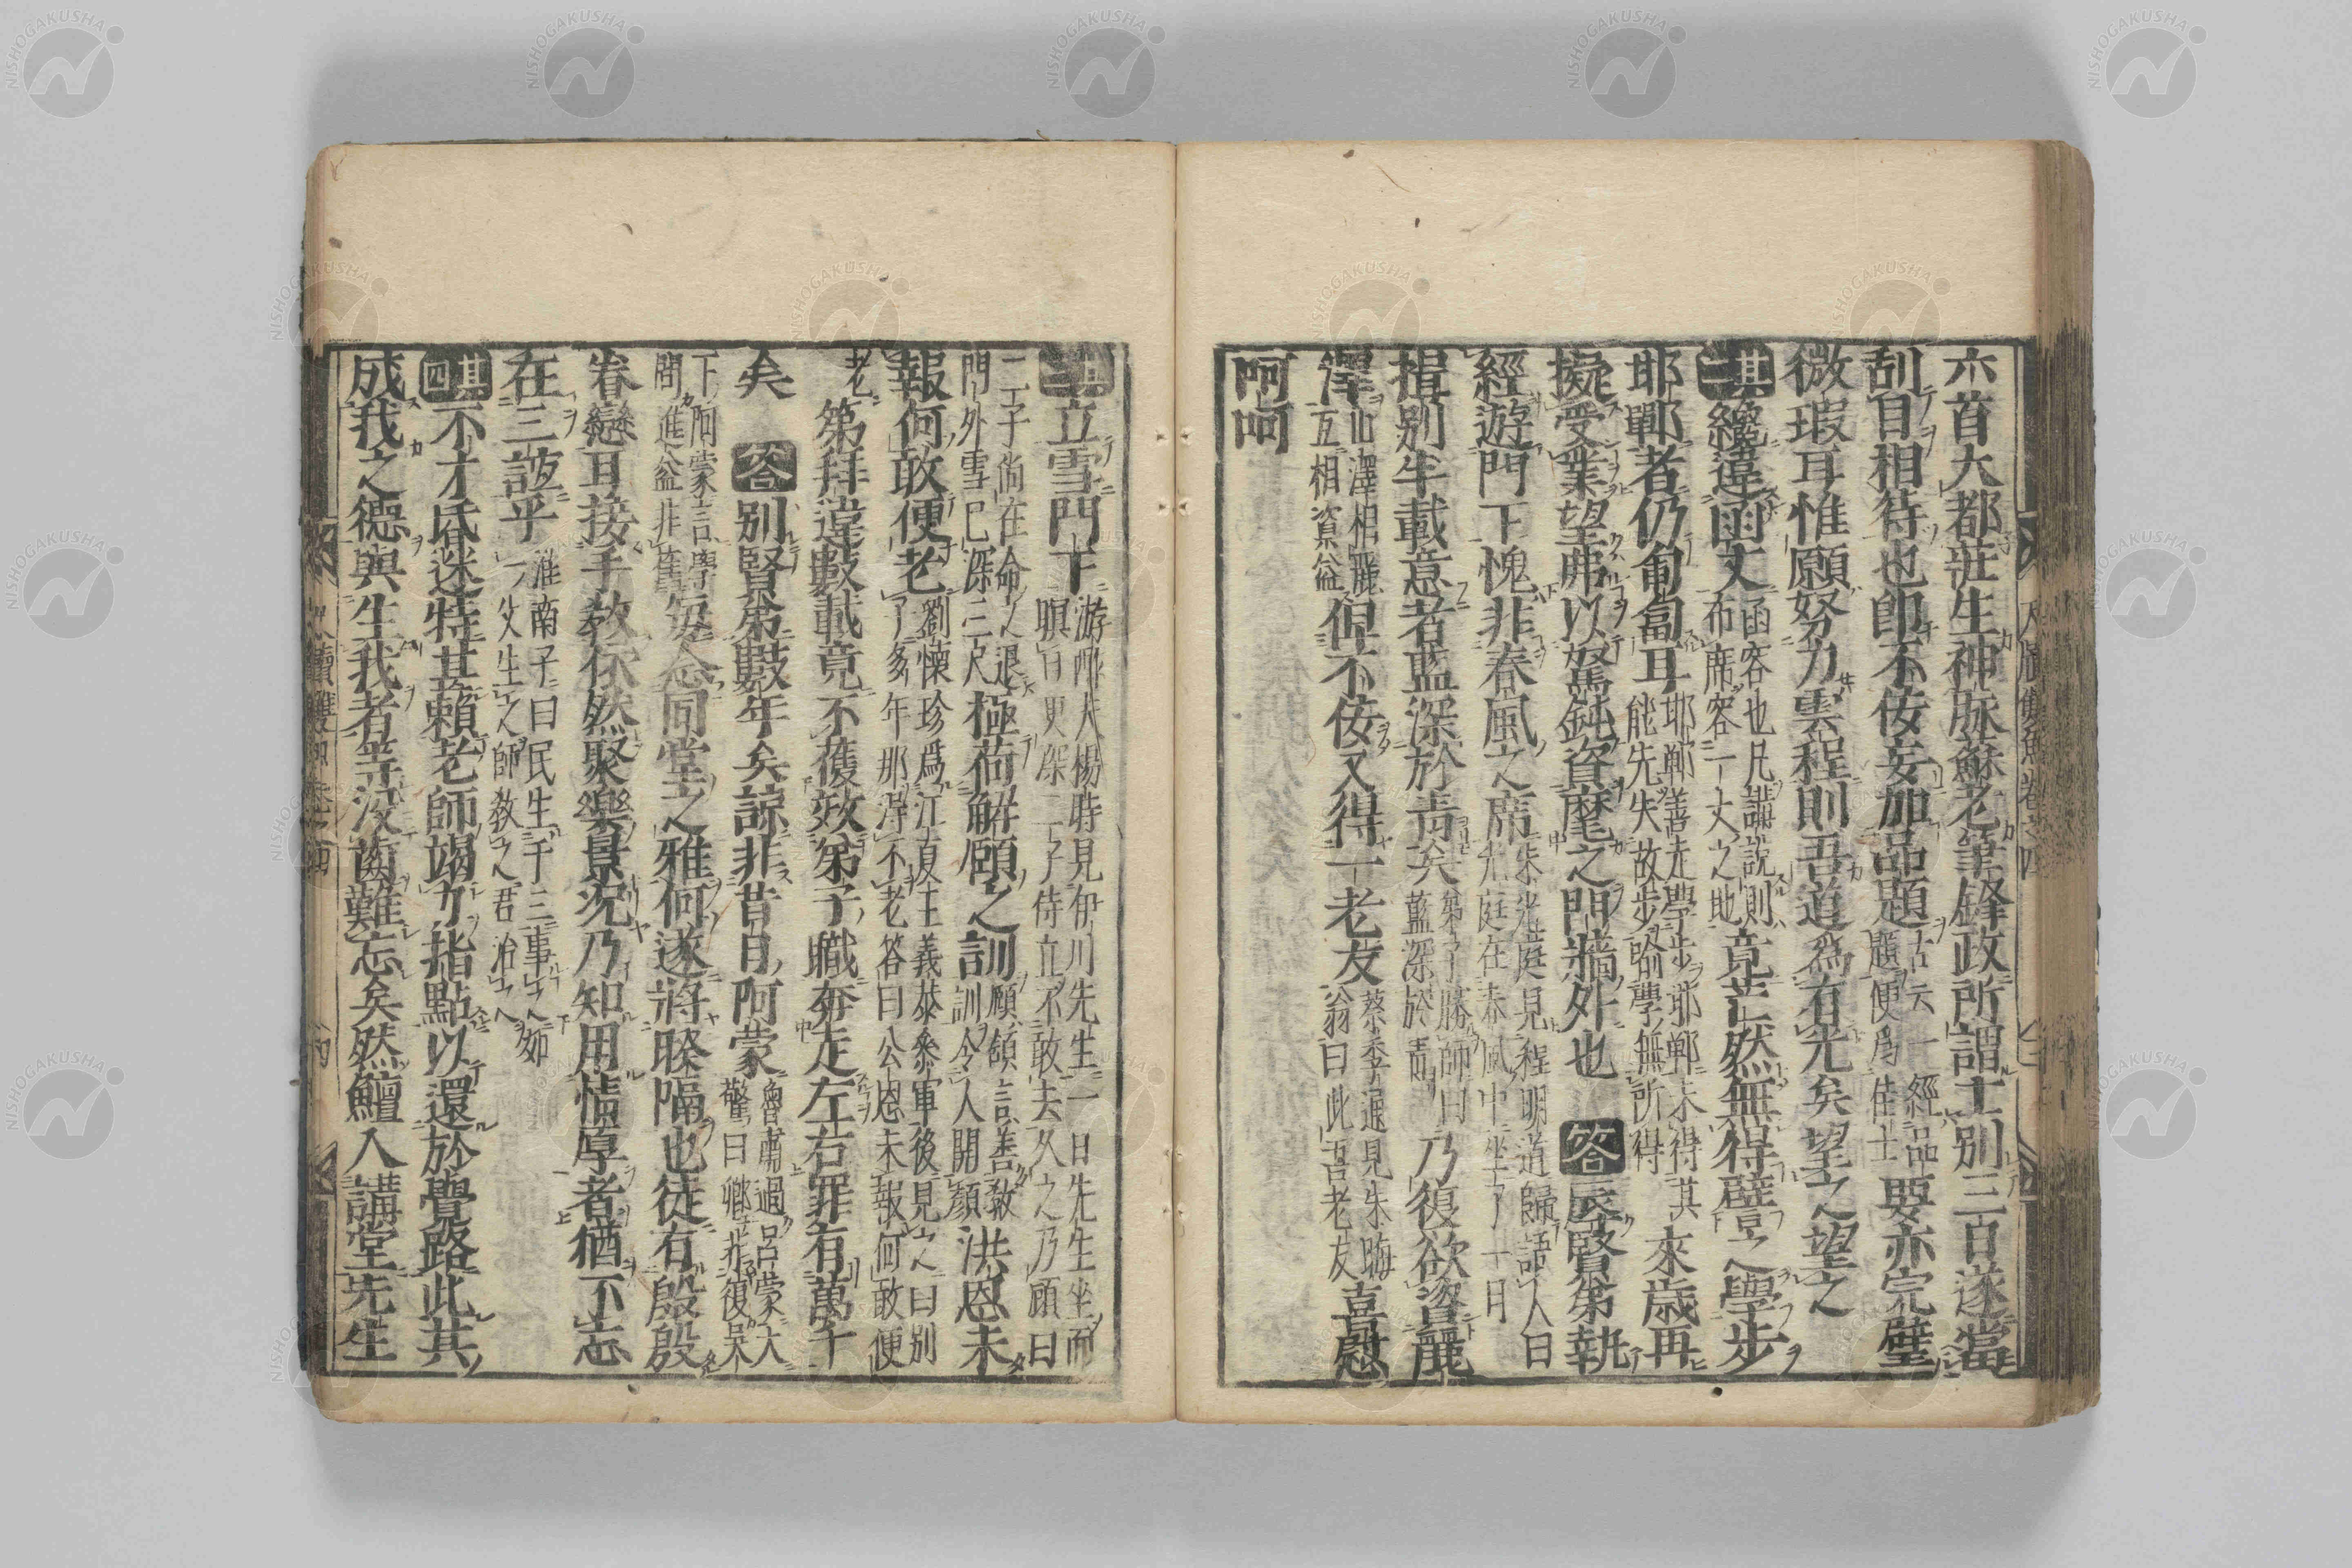 六首大都莊生神脉蘇老筆鋒政所謂士别三百遂當
刮目相待也卽不佞妄加品題古云一經品題便爲佳士要亦完璧
微瑕耳惟願努力雲程則吾道爲有光矣望之望之
其二纔違函丈函容也凡講說則布席容一丈之地竟茫然無得譬之學步
耶鄲者仍匍匐耳耶鄲善走學步耶鄲未得其能先失故步喻學無所得來歲再
擬受業望弗以駑鈍資麾之門牆外也 答辱賢弟執
經遊門下愧非春風之席朱光庭見程明道歸語人曰光庭在春風中坐了一月
揖别半載意者藍深於青矣第子勝師曰藍深於青乃復欲資麗
澤山澤相麗互相資益但不佞又得一老友蔡季通見朱晦翁曰此吾老友喜慰
呵呵
尺牘雙魚卷之四
其三立雪門下游酢夫楊時見伊川先生一日先生坐而瞑二子侍立不敢去久之乃顧曰
二子尙在命之退門外雪已深三尺極荷解頤之訓顧頷言善敎訓令人開顏洪恩未
報何敢便老劉懷珍爲江夏王義恭參軍後見之曰别了多年那得不老答曰公恩未報何敢便
老第拜違數載竟不獲效第子職奔走左右罪有萬千
矣 答别賢弟數年矣諒非昔日阿蒙魯肅過呂蒙大驚曰卿非復吳
下阿蒙言學問進益非舊每念同堂之雅何遂將睽隔也徒有殷殷
眷戀耳接手教你然聚樂景況乃知用情厚者猶不忘
在三誼乎淮南子曰民生于三事之如一父生之師教之君治之
其四不才昏迷特甚賴老師竭力指點以還於覺路此其
成我之德與生我者等沒齒難忘矣然鱣入講堂先生